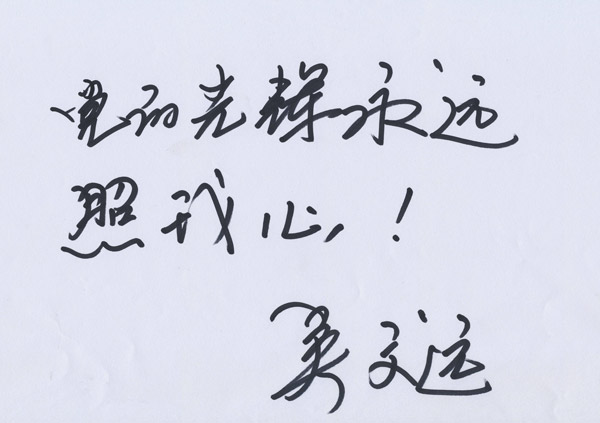 党的光辉永远
照我心！
文运